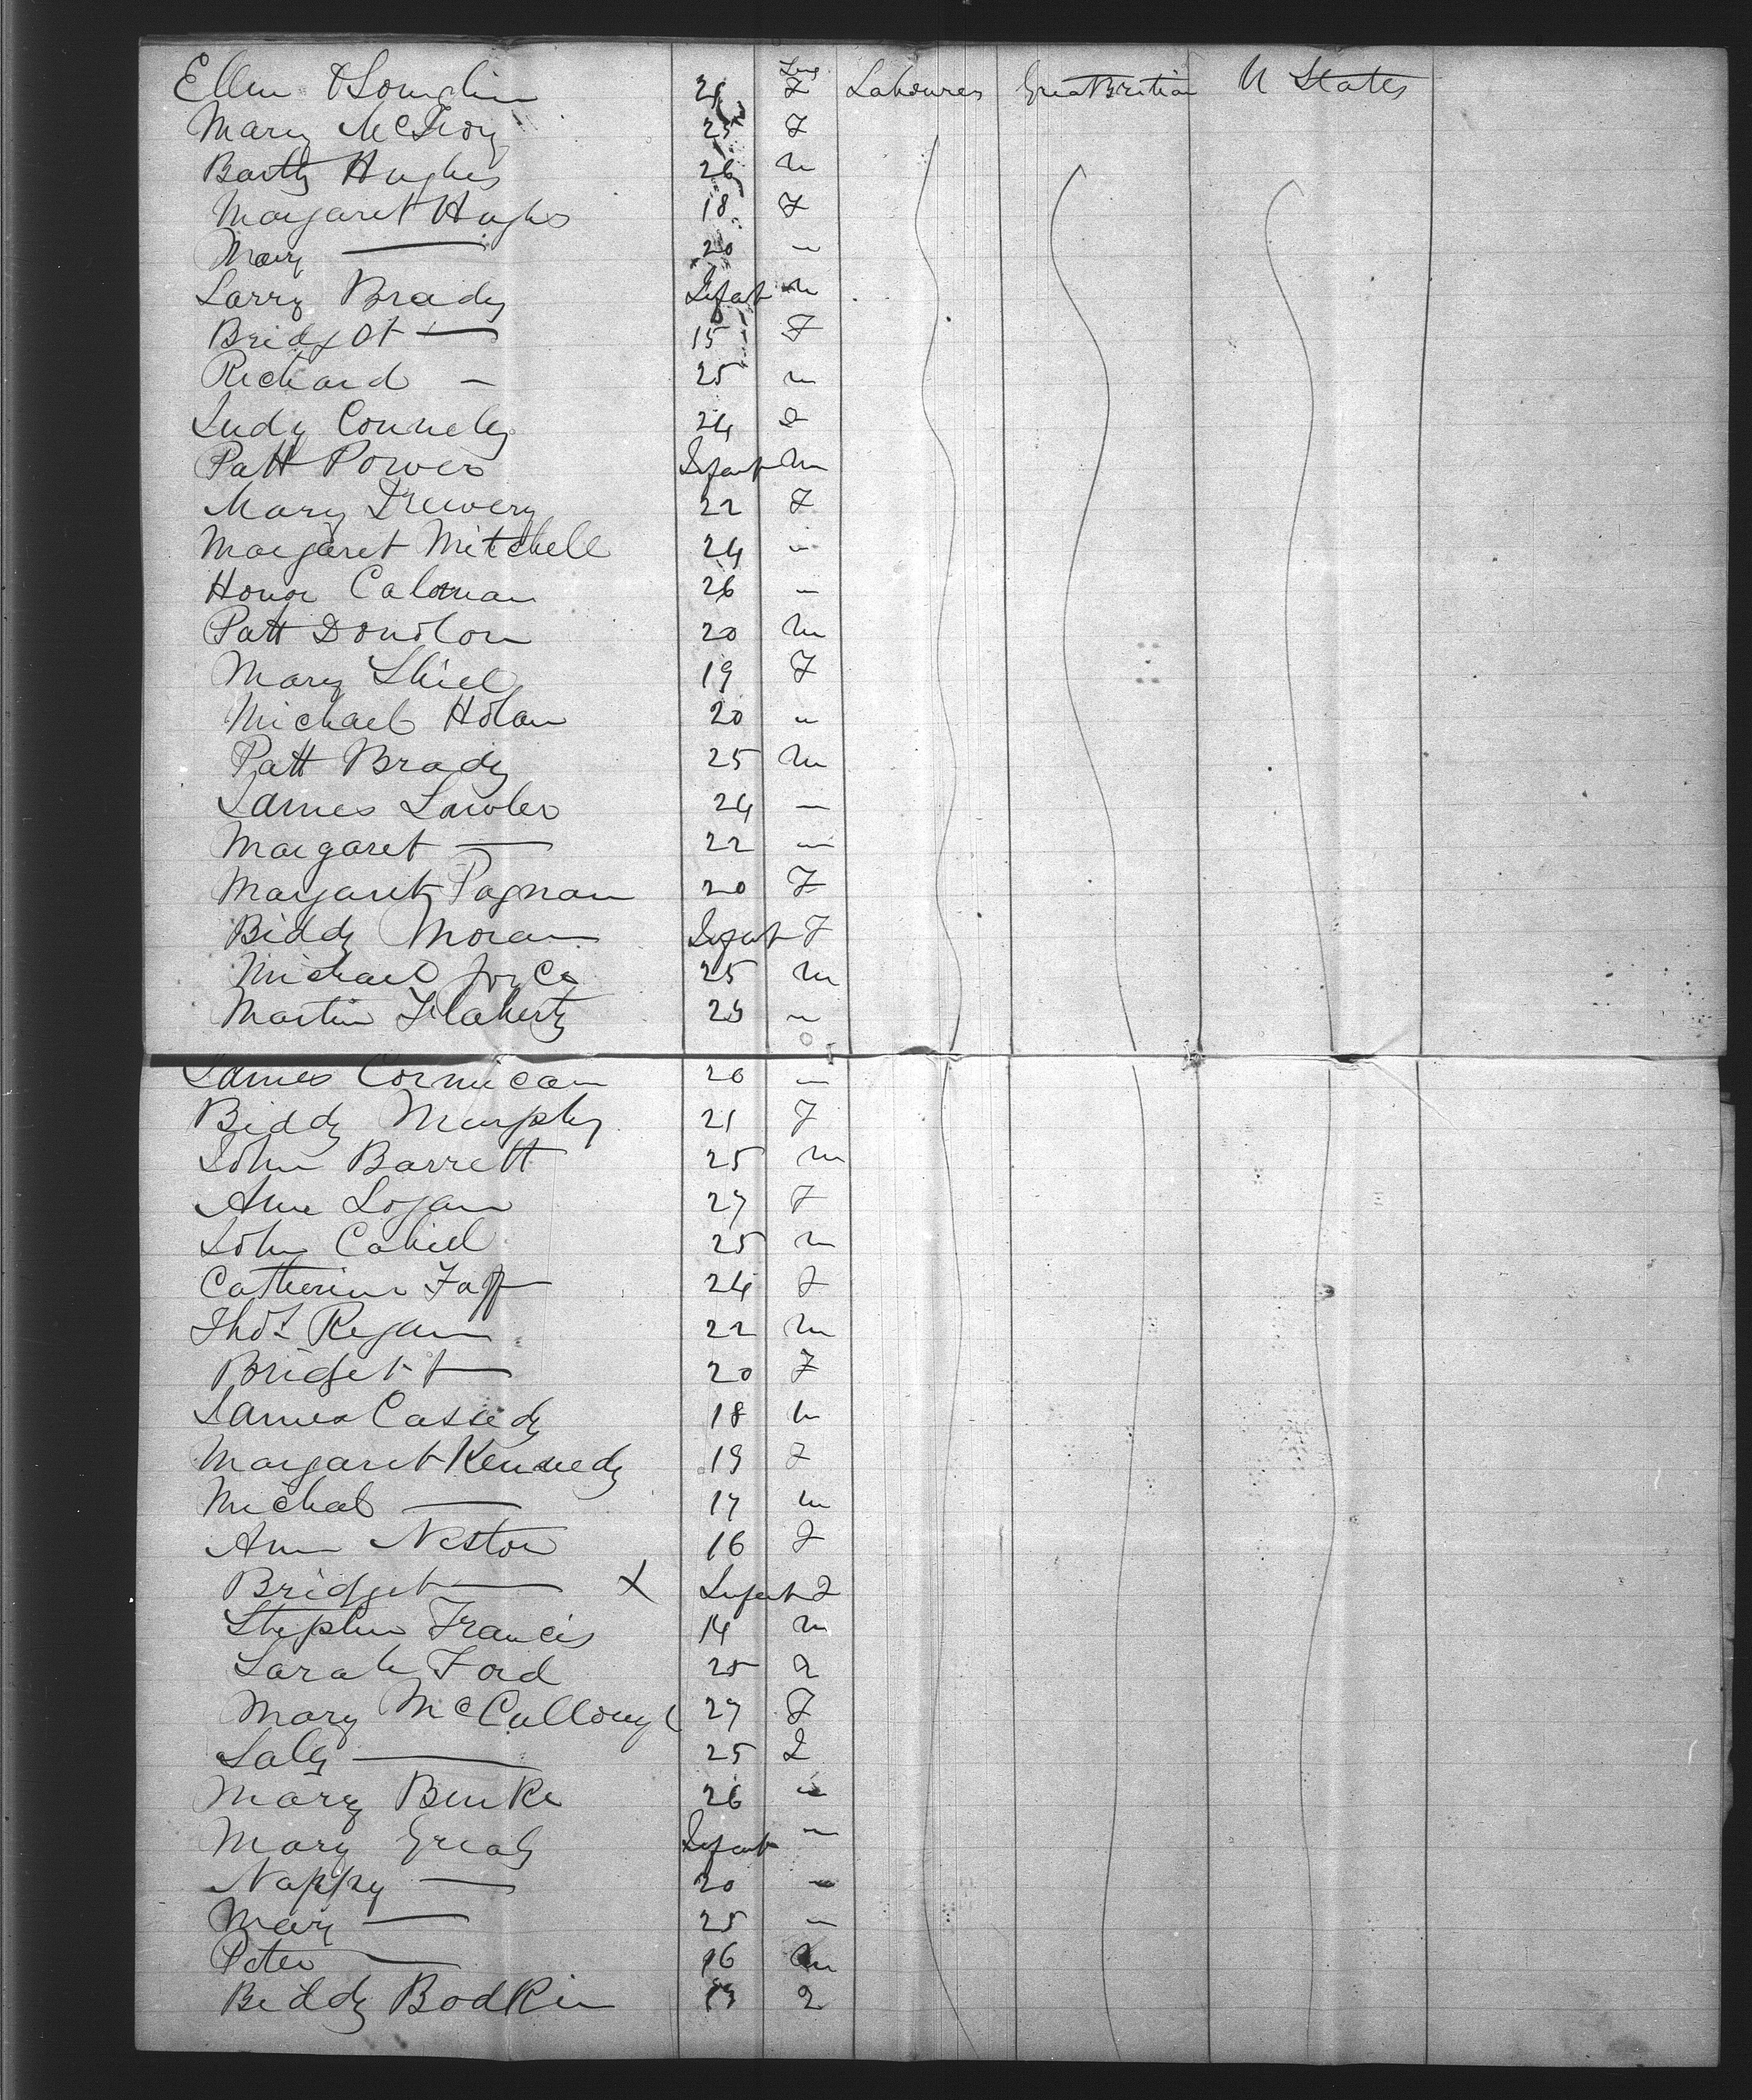 Ellen 21 F Labourers Great Britian U States
Mary McIvoy 25 F
Bartly Hughes 26 m
Margaret Hughs 18 F
Mary — 20 "
Larry Brady Infant m
Bridget — 15 F
Richard — 25 m
Judy Connely 24 F
Patt Power Infant m
Mary Drewery 22 F
Margaret Mitchell 24 "
Honor Calanan 26 "
Patt Donolon 20 m
Mary Shiel 19 F
Michael Holan 20 "
Patt Brady 25 m
James Lawler 24 —
Margaret — 22 "
Margaret 20 F
Biddy Moran Infant F
Michael Joyce 25 m
Martin Flaherty 23 "
James Cormican 20 "
Biddy Murphy 21 F
John Barrett 25 m
Ann Logan 27 F
John Cahill 25 m
Catherine 24 F
Thos Regan 22 m
Bridgett — 20 F
James Cassedy 18 m
Margaret Kennedy 19 F
Michal — 17 m
Ann Nestor 16 F
Bridget — X Infant F
Stephen Francis 14 m
Sarah Ford 25 F
Mary McCullough 27 F
Sally — 25 F
Mary Burke 26 "
Mary Grealy Infant "
Nappy — 20 "
Mary — 25 "
Peter — 16 m
Biddy Bodkin 19 F